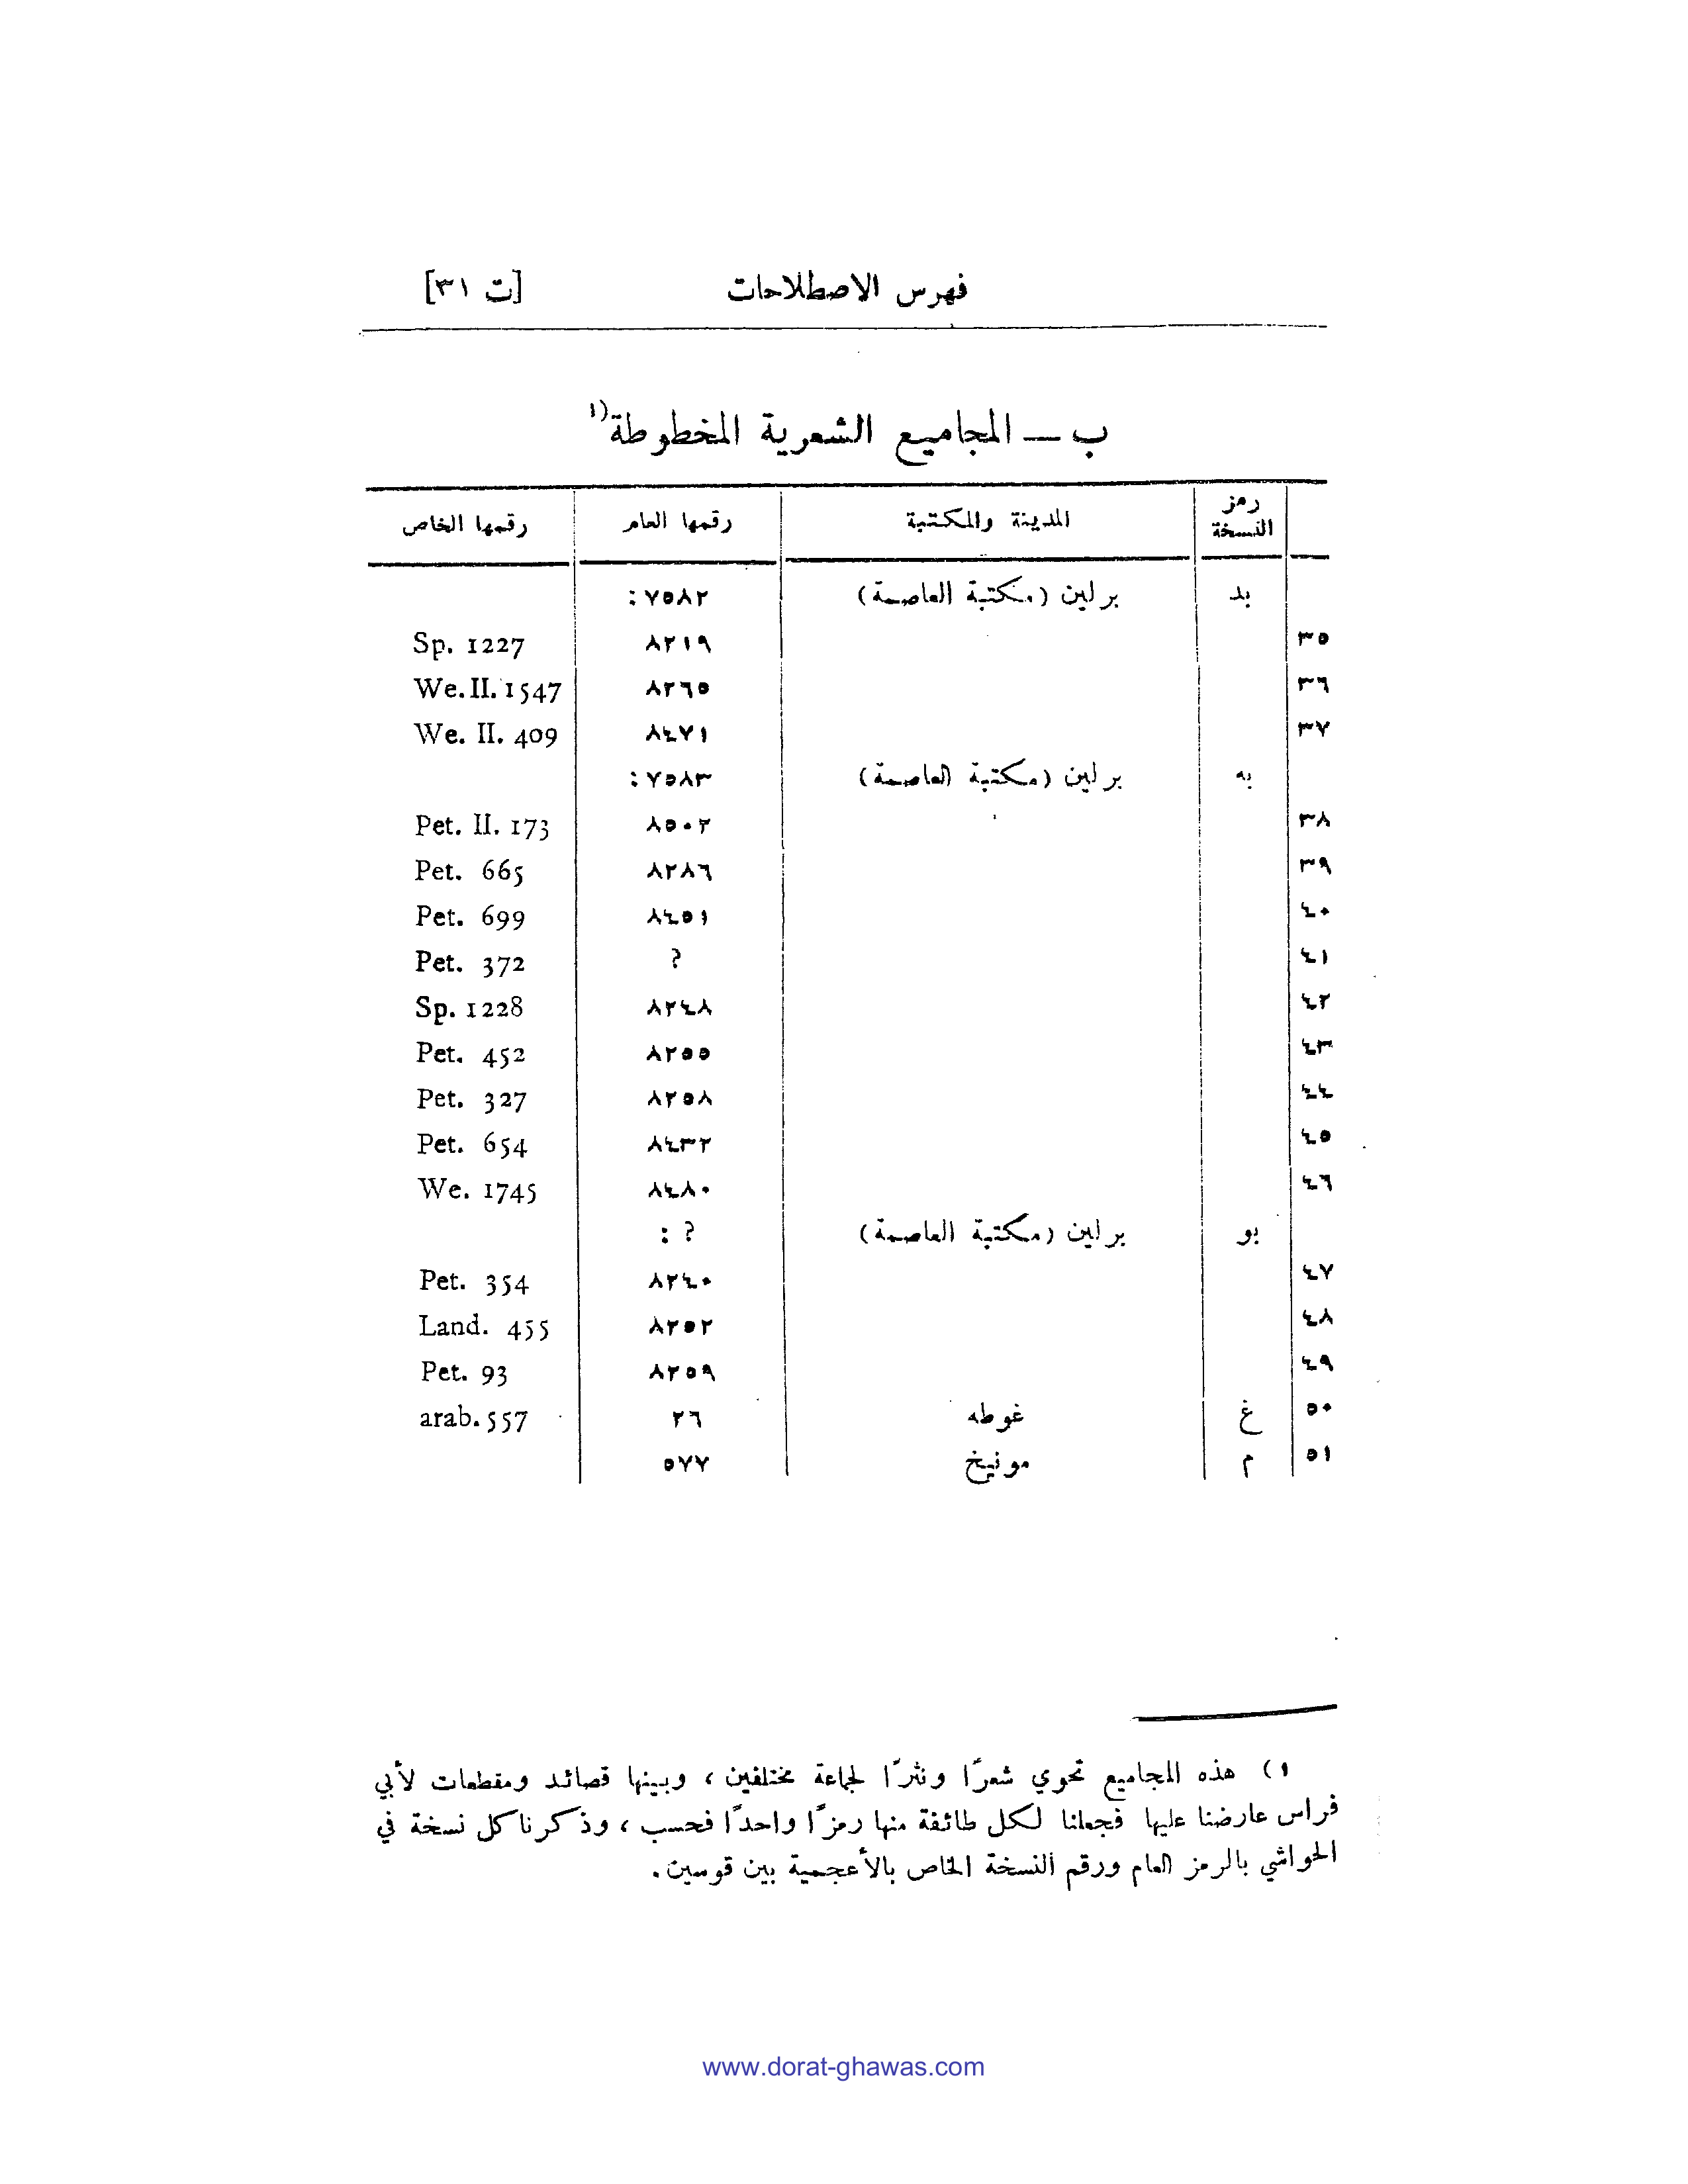 فهرس الاصطلاحات [ت ٣١]
ب — المجاميع الشعرية المخطوطة (١
رمز النسخة المدينة والمكتبة رقمها العام رقمها الخاص
بد برلين (مكتبة العاصمة) ٧٥٨٢ :
٣٥ ٨٢١٩ Sp. 1227
٣٦ ٨٢٦٥ We. II. 1547
٣٧ ٨٤٧١ We. II. 409
به برلين (مكتبة العاصمة) ٧٥٨٣ :
٣٨ ٨٥٠٢ Pet. II. 173
٣٩ ٨٢٨٦ Pet. 665
٤٠ ٨٤٥١ Pet. 699
٤١ ? Pet. 372
٤٢ ٨٢٤٨ Sp. 1228
٤٣ ٨٢٥٥ Pet. 452
٤٤ ٨٢٥٨ Pet. 327
٤٥ ٨٤٣٢ Pet. 654
٤٦ ٨٤٨٠ We. 1745
بو برلين (مكتبة العاصمة) ? :
٤٧ ٨٢٤٠ Pet. 354
٤٨ ٨٢٥٢ Land. 455
٤٩ ٨٢٥٩ Pet. 93
٥٠ غ غوطه ٢٦ arab. 557
٥١ م مونيخ ٥٧٧
١) هذه المجاميع تحوي شعرًا ونثرًا لجماعة مختلفين ، وبينها قصائد ومقطعات لأبي
فراس عارضنا عليها فجعلنا لكل طائفة منها رمزًا واحدًا فحسب ، وذكرنا كل نسخة في
الحواشي بالرمز العام ورقم النسخة الخاص بالأعجمية بين قوسين .
www.dorat-ghawas.com